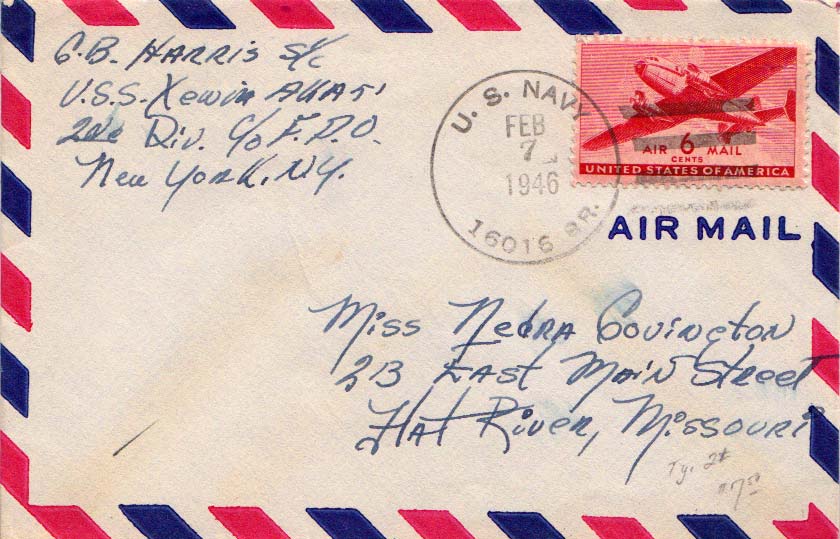 G.B. HARRis S1/c
U.S.S. Xewin AKA 51
2nd Div. C/o F.P.O.
New York, NY.
U. S. NAVY
FEB
7
1946
16016 BR.
AIR 6 MAIL
CENTS
UNITED STATES OF AMERICA
AIR MAIL
Miss Nedra Covington
23 East Main Street
Flat River, Missouri